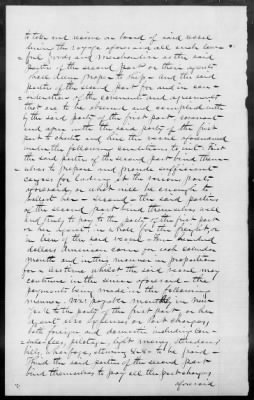 to take and receive on board of said vessel
during the voyage aforesaid all such law-
ful goods and merchandise as the said
parties of the second part or their agents
shall deem proper to ship - and the said
parties of the second part for and in con-
sideration of the covenants and agreements
that are to be observed and complied with
by the said party of the first part, covenant
and agree with the said party of the first
part to charter and hire the vessel aforesaid
under the following conditions to wit: That
the said parties of the second part bind them-
selves to prepare and provide sufficient
cargo for lading at the various ports
aforesaid, or what will be enough to
ballast her - Second - the said parties
of the second part bind themselves well
and truly to pay to the party of the first part
or her Agent, in whole for the freight, or
in lieu of the said vessel - hundred
dollars American coin for each calendar
month and in this manner in proportion
for a less time whilst the said vessel may
continue in the service aforesaid - the
payments being made in the following
manner. Viz: payable monthly in New
York to the party of the first part, or her
Agent all expenses or Port charges,
both foreign and domestic including Con-
sular fees, pilotage, light money, stevedores
bills, wharfage, stowing &c &c to be paid -
Third the said parties of the second part
bind themselves to pay all the port charges
aforesaid